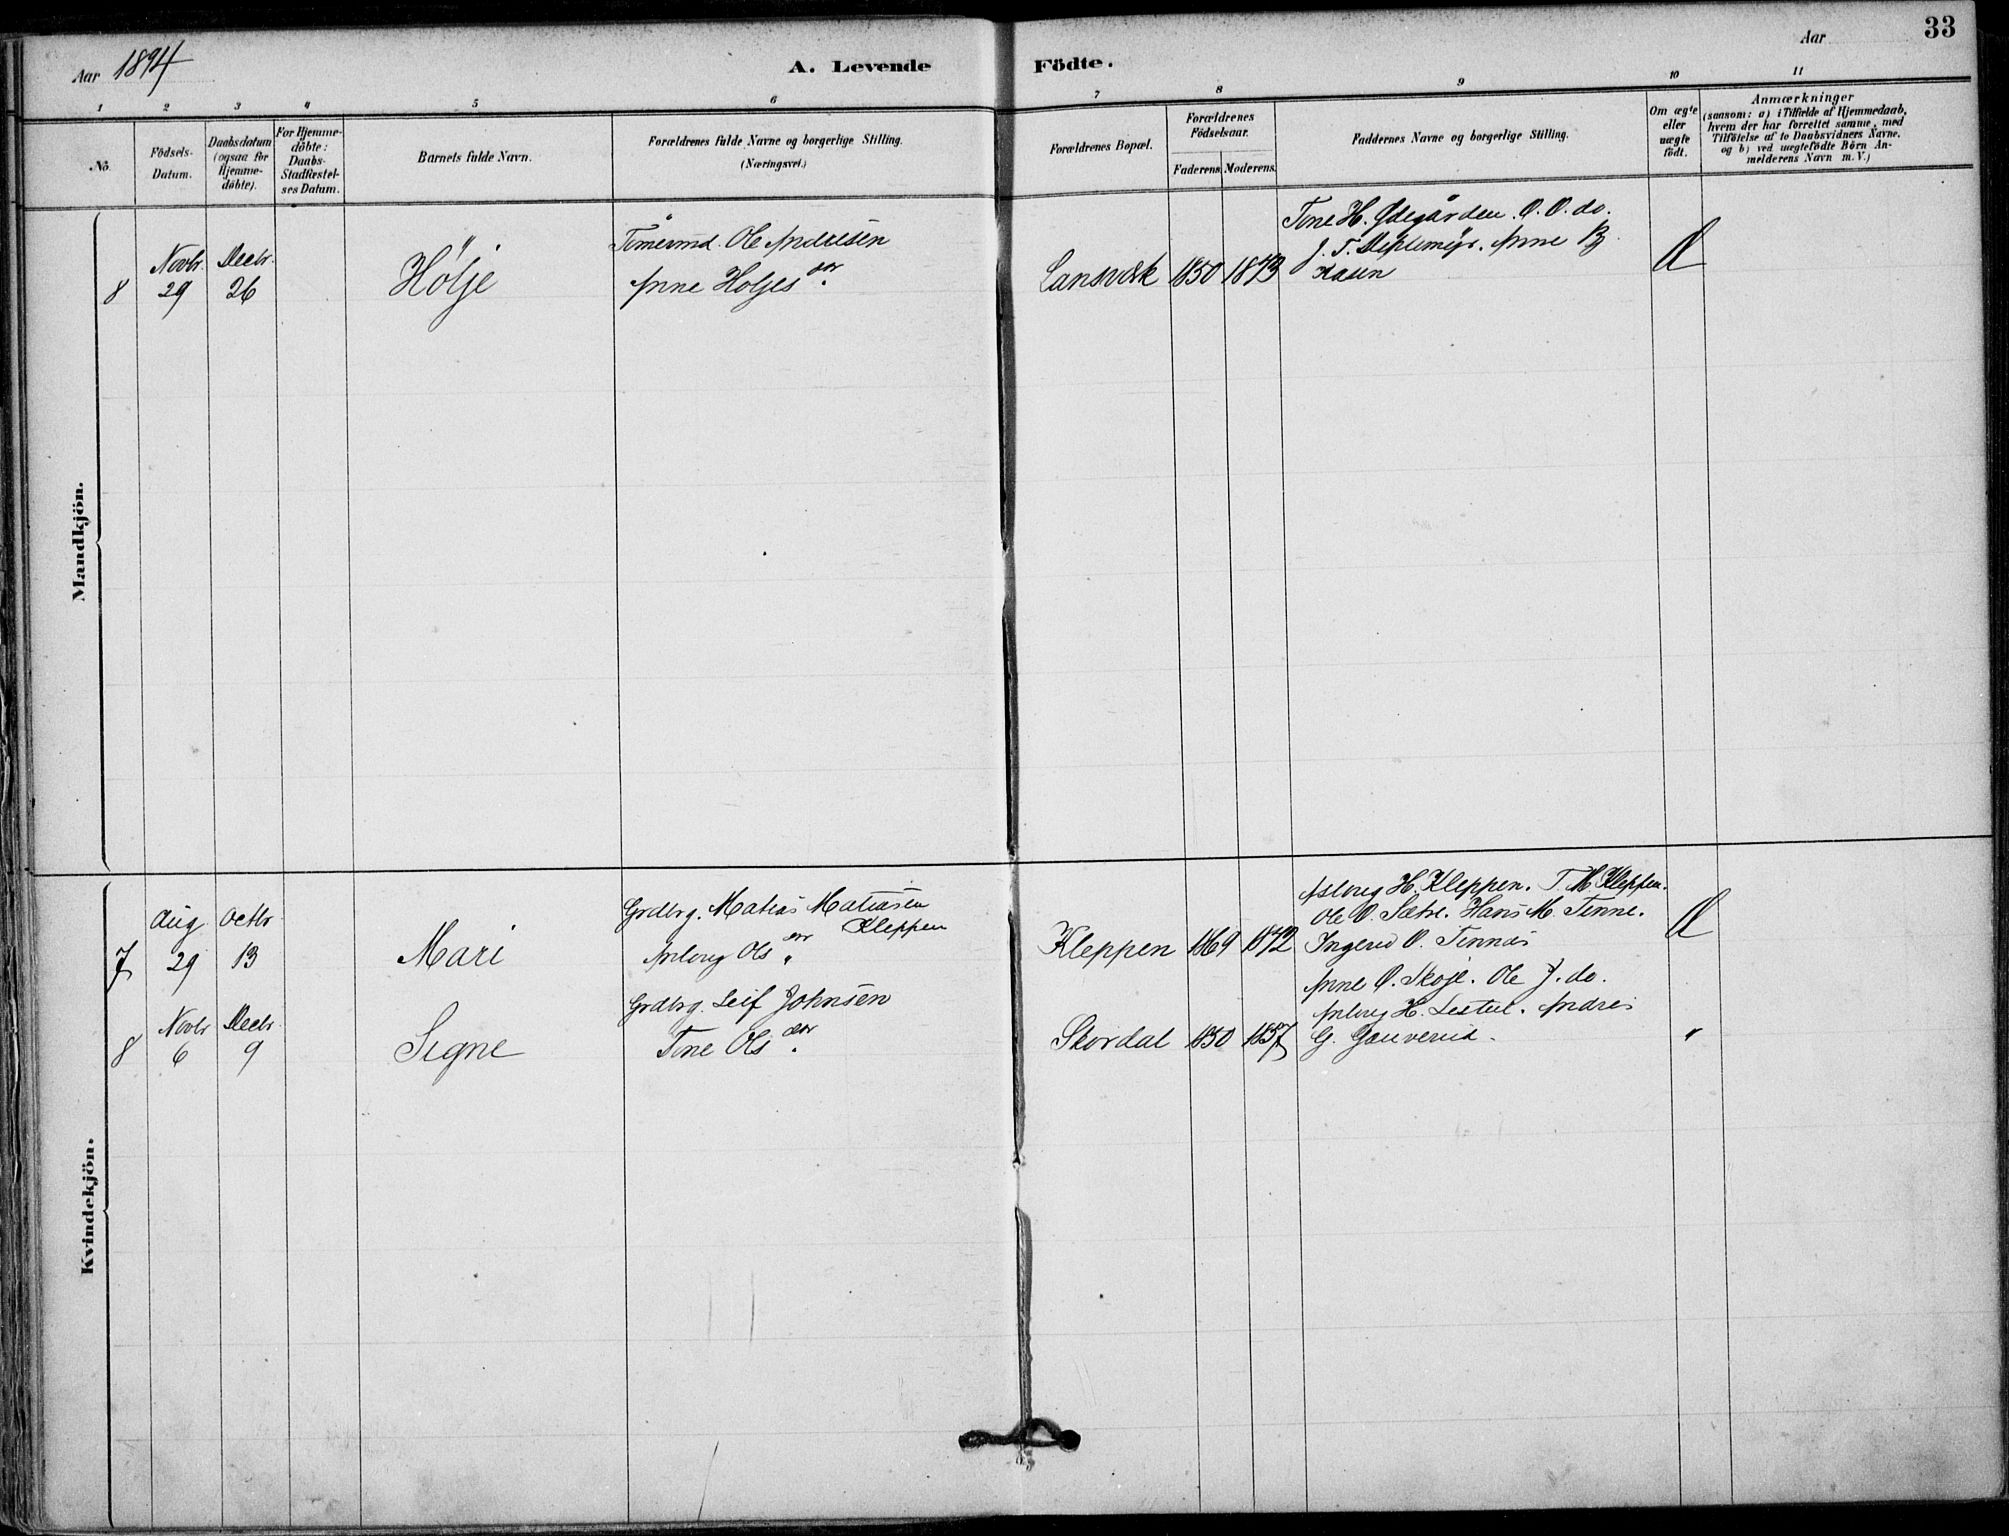 33
Aar 1894
A. Levende Födte.
Aar
1 2 3 4 5 6 7 8 9 10 11
No.
Födsels-
Datum.
Daabsdatum
(ogsaa for
Hjemme-
döbte).
For Hjemme-
döbte:
Daabs-
Stadfæstel-
ses Datum.
Barnets fulde Navn.
Forældrenes fulde Navne og borgerlige Stilling.
(Næringsvei.)
Forældrenes Bopæl.
Forældrenes
Födselsaar.
Faderens. Moderens.
Faddernes Navne og borgerlige Stilling.
Om ægte
eller
uægte
födt.
Anmærkninger
(saasom: a) i Tilfælde af Hjemmedaab,
hvem der har forrettet samme, med
Tilföielse af to Daabsvidners Navne,
og b) ved uægtefödte Börn An-
melderens Navn m. V.)
Mandkjön.
8
Novbr.
29
Decbr.
26
Hölje
Ole Andresen
Anne Holjes dtr.
1850 1873
Tone H. Ødegården. O. O. do.
Anne
Aasen
Æ
Kvindekjön.
7
Aug
29
Octbr
13
Mari
Grdbrg. Matias Matiasen
Kleppen
Ols dtr.
Kleppen 1869 1872
Asloug H. Kleppen. T. M. Kleppen.
Ole O. Sætre. Hans M. Tinne.
Ingerid O. Tinnæs
Æ
8
Novbr
6
Decbr.
9
Signe
Grdbrg. Leif Johnsen
Tone Ols dtr.
Skordal 1850 1857
Anne O. Skoje. Ole J. do.
H. Lestul. Andres
G.
"